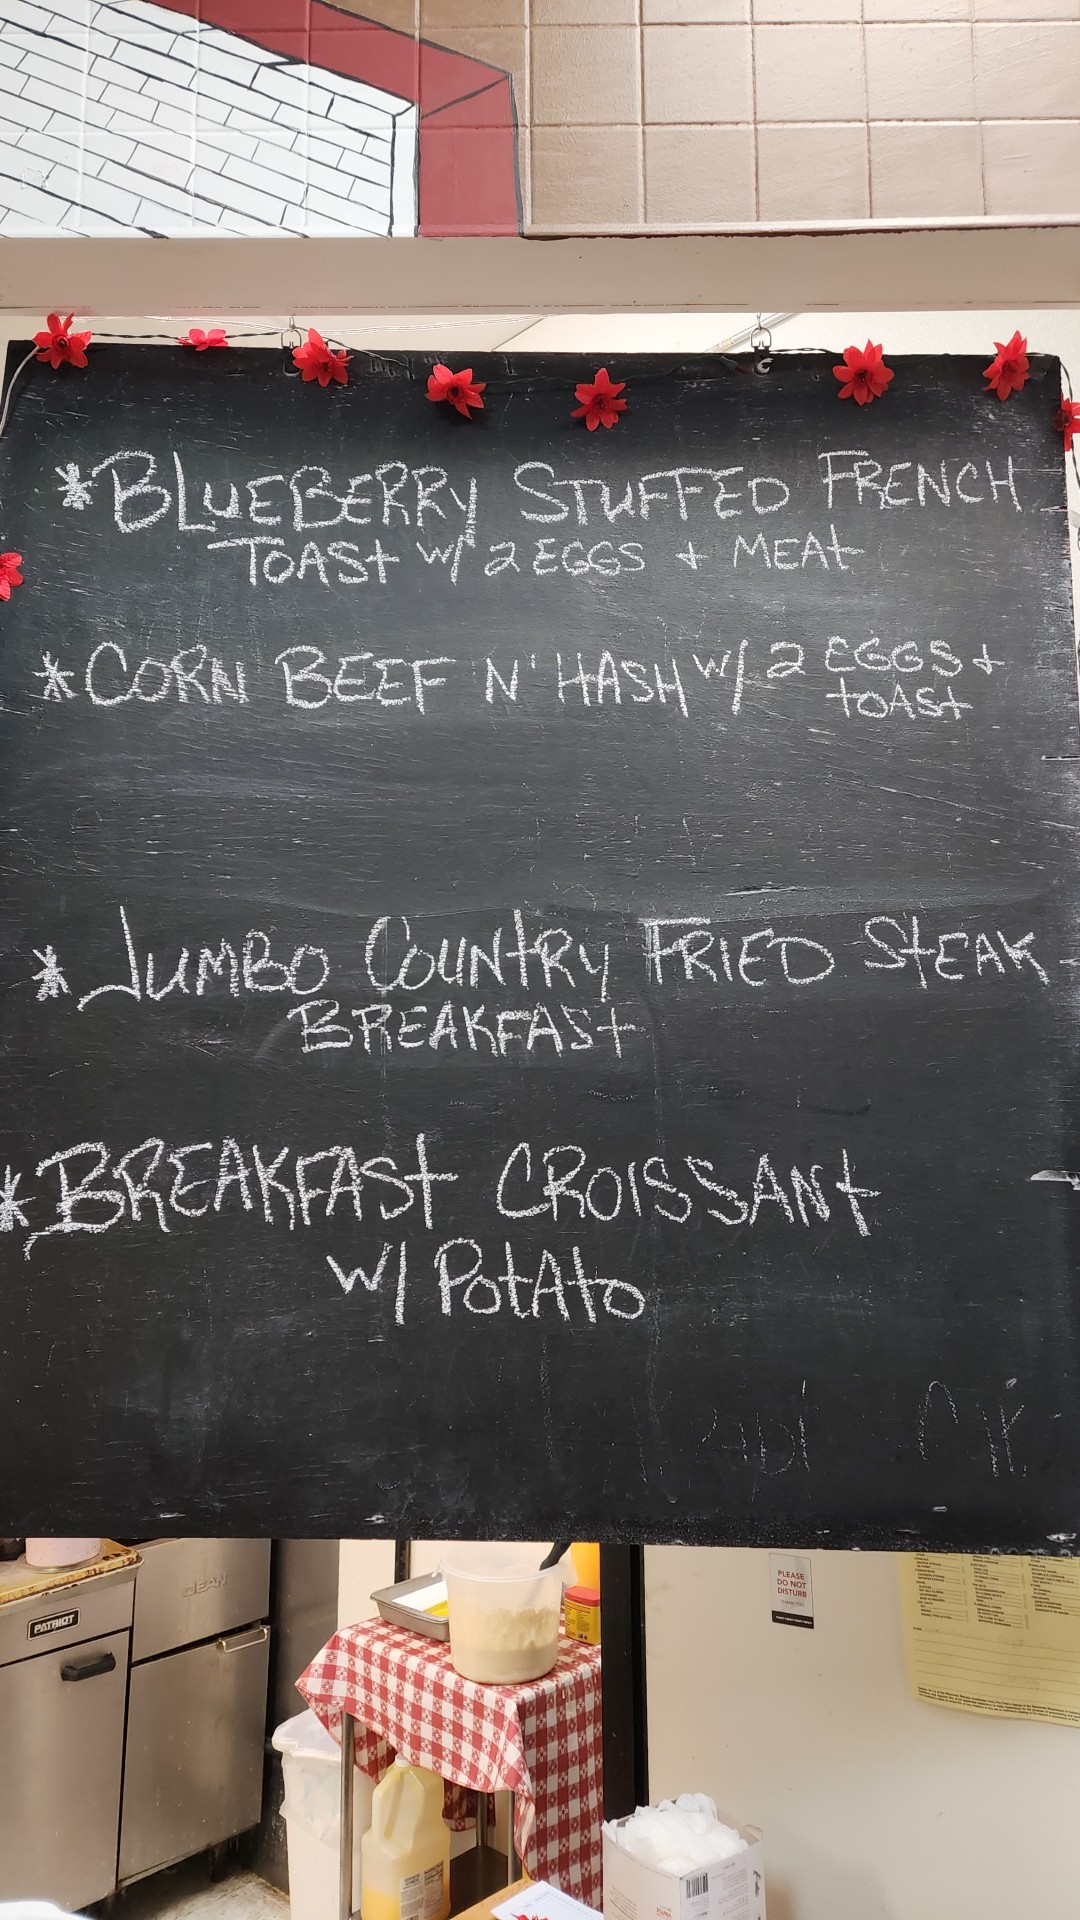 *BLUEBERRY STUFFED FRENCH
TOAST W/ 2 EGGS + MEAT
*CORN BEEF N' HASH W/ 2 EGGS +
TOAST
* JUMBO COUNTRY FRIED STEAK
BREAKFAST
*BREAKFAST CROISSANT
W/ POTATO
DEAN
PATRIOT
PLEASE
DO NOT
DISTURB
THANK YOU